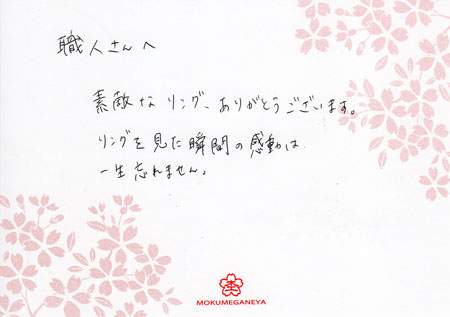 職人さんへ
素敵なリング、ありがとうございます。
リングを見た瞬間の感動は
一生忘れません。
MOKUMEGANEYA